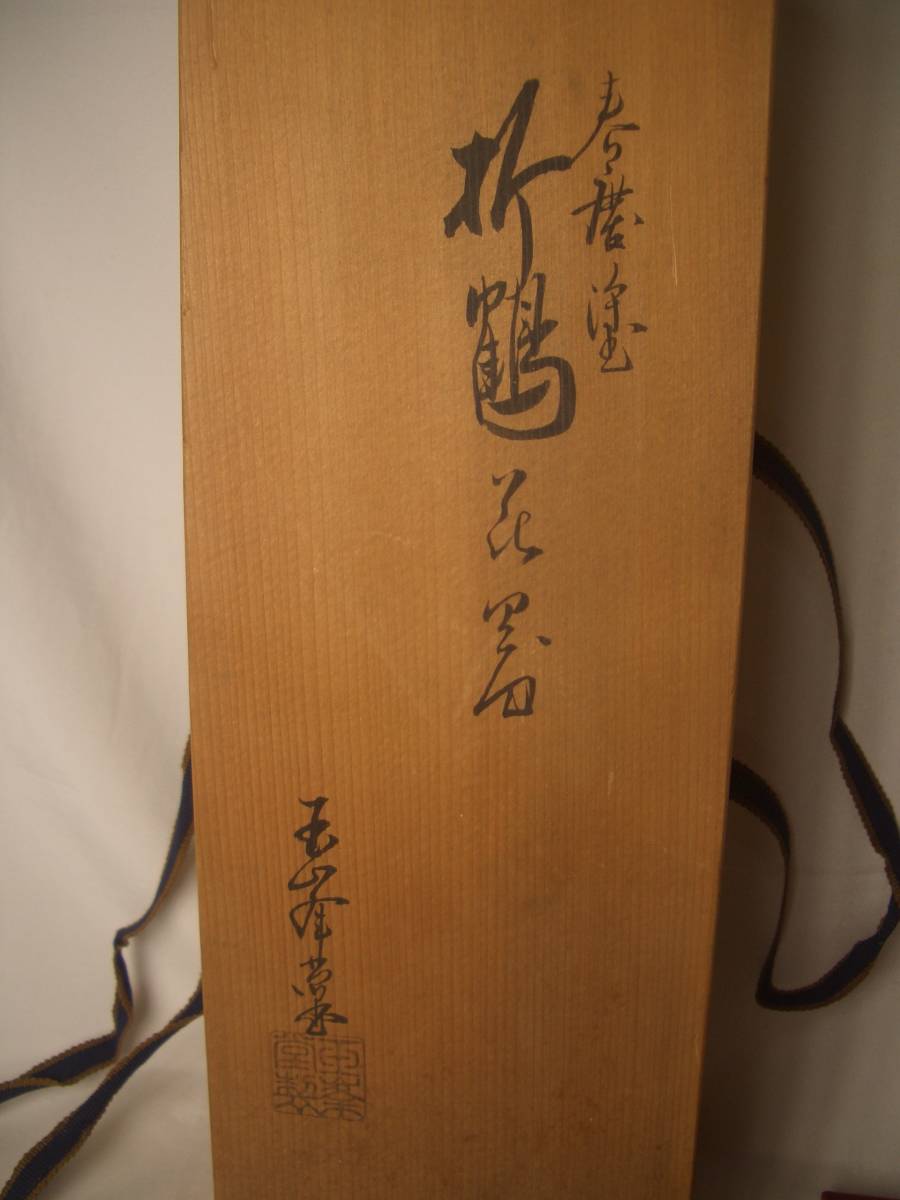 春慶塗
折鶴花器
玉峯堂